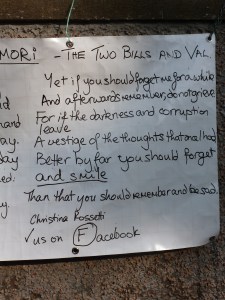 MORI - THE TWO BILLS AND VAL.
Yet if you should forget me for a while
And afterwards remember, do not grieve
For if the darkness and corruption
leave
A vestige of the thoughts that once I had
Better by far you should forget
and smile
Than that you should remember and be sad.
Christina Rossetti
✓ us on Facebook
hand
day